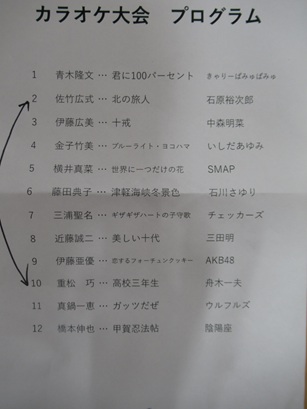 カラオケ大会 プログラム
1 青木隆文 … 君に100パーセント きゃりーぱみゅぱみゅ
2 佐竹広式 … 北の旅人 石原裕次郎
3 伊藤広美 … 十戒 中森明菜
4 金子竹美 … ブルーライト・ヨコハマ いしだあゆみ
5 横井真菜 … 世界に一つだけの花 SMAP
6 藤田典子 … 津軽海峡冬景色 石川さゆり
7 三浦聖名 … ギザギザハートの子守歌 チェッカーズ
8 近藤誠二 … 美しい十代 三田明
9 伊藤亜優 … 恋するフォーチュンクッキー AKB48
10 重松 巧 … 高校三年生 舟木一夫
11 真鍋一恵 … ガッツだぜ ウルフルズ
12 橋本伸也 … 甲賀忍法帖 陰陽座